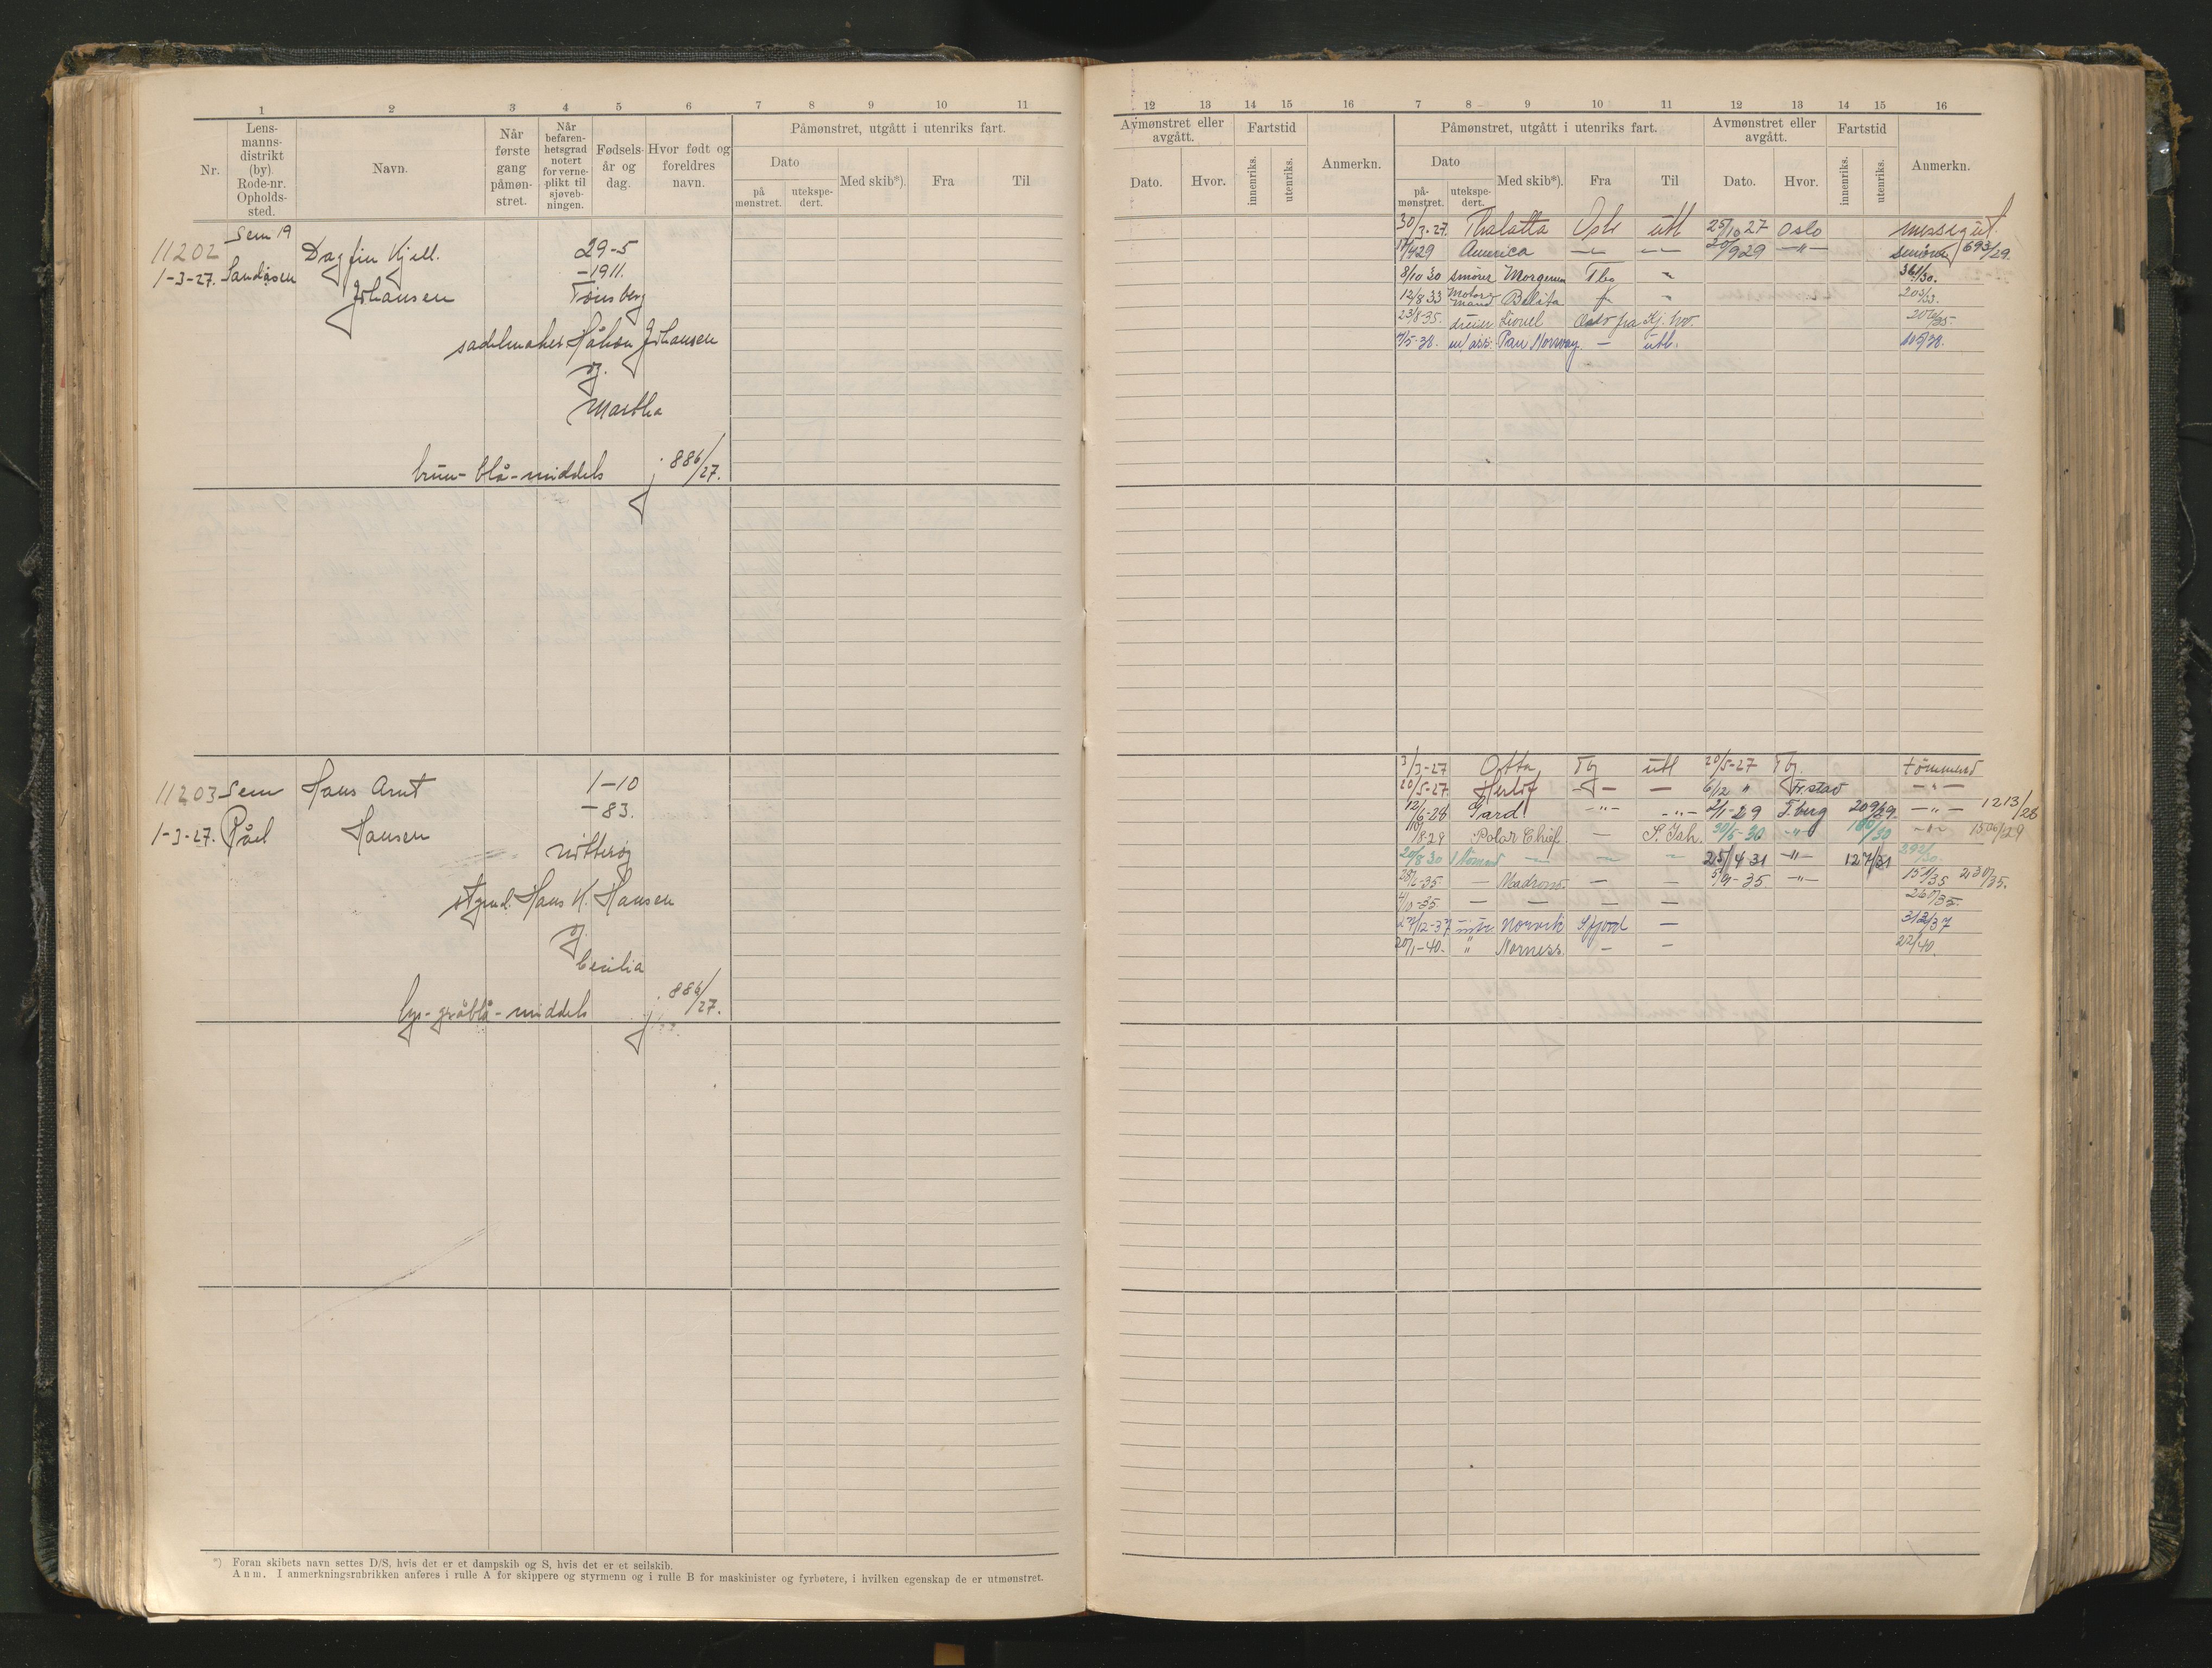 1 2 3 4 5 6 7 8 9 10 11
Nr.
Lens-
manns-
distrikt
(by).
Rode-nr.
Opholds-
sted.
Navn.
Når
første
gang
påmøn-
stret.
Når
befaren-
hetsgrad
notert
for verne-
plikt til
sjøveb-
ningen.
Fødsels-
år og
dag.
Hvor født og
foreldres
navn.
Påmønstret, utgått i utenriks fart.
Dato
på
mønstret.
utekspe-
dert.
Med skib*).
Fra
Til
Sem 19
11202 Dagfin Kjell. 29-5
1-3-27. Sandåsen -1911.
Johansen Tønsberg
sadelmaker Håkon Johansen
og
Martha
brun-blå-middels j 886/27.
11203 Sem Hans Arnt 1-10
-83.
1-3-27. Råel Hansen
Nøtterøy
styrmd. Hans K. Hansen
og
Cecilia
lys-gråblå-middels j 886/27.
*) Foran skibets navn settes D/S, hvis det er et dampskib og S, hvis det er et seilskib.
Anm. I anmerkningsrubrikken anføres i rulle A for skippere og styrmenn og i rulle B for maskinister og fyrbøtere, i hvilken egenskap de er utmønstret.
12 13 14 15 16 7 8 9 10 11 12 13 14 15 16
Avmønstret eller
avgått.
Dato.
Hvor.
Fartstid
innenriks.
utenriks.
Anmerkn.
Påmønstret, utgått i utenriks fart.
Dato
på-
mønstret.
utekspe-
dert.
Med skib*).
Fra
Til
Avmønstret eller
avgått.
Dato.
Hvor.
Fartstid
innenriks.
utenriks.
Anmerkn.
30/3-27. Thalatta Oslo utl 25/10 27 Oslo messegut.
America — — 20/9 29 —"— 693/29.
8/10 30 smører Morgenen Tbg " 361/30.
12/8 33 Motormand Belita " 203/33.
23/8-35. dreier Lionel Oslo fra Kj. hvv.
/5-38. m/ass. Pan Norway — utl.
3/3-27 Otta Tbg utl 20/5-27 Tbg. tømmmd
20/5-27 Herlof — — 6/12 " Fr.stad —"—
12/6-28 Gard —"— —"— 2/1-29 T.berg 209/29. —"— 1213/28
/8-29 Polar Chief — S. Ish. 30/5-30 —"— 180/30 —"— 1500/29
20/8 30 tömmd — — " 25/4 31 —"— 127/31 392/30.
28/6-35. — Madrono. — — 5/9-35. —"— 151/35 230/35.
4/10-35. — — — — 260/35.
27/12-37 Norvik S.fjord — 312/37
20/1-40. " Norness. — — 22/40.